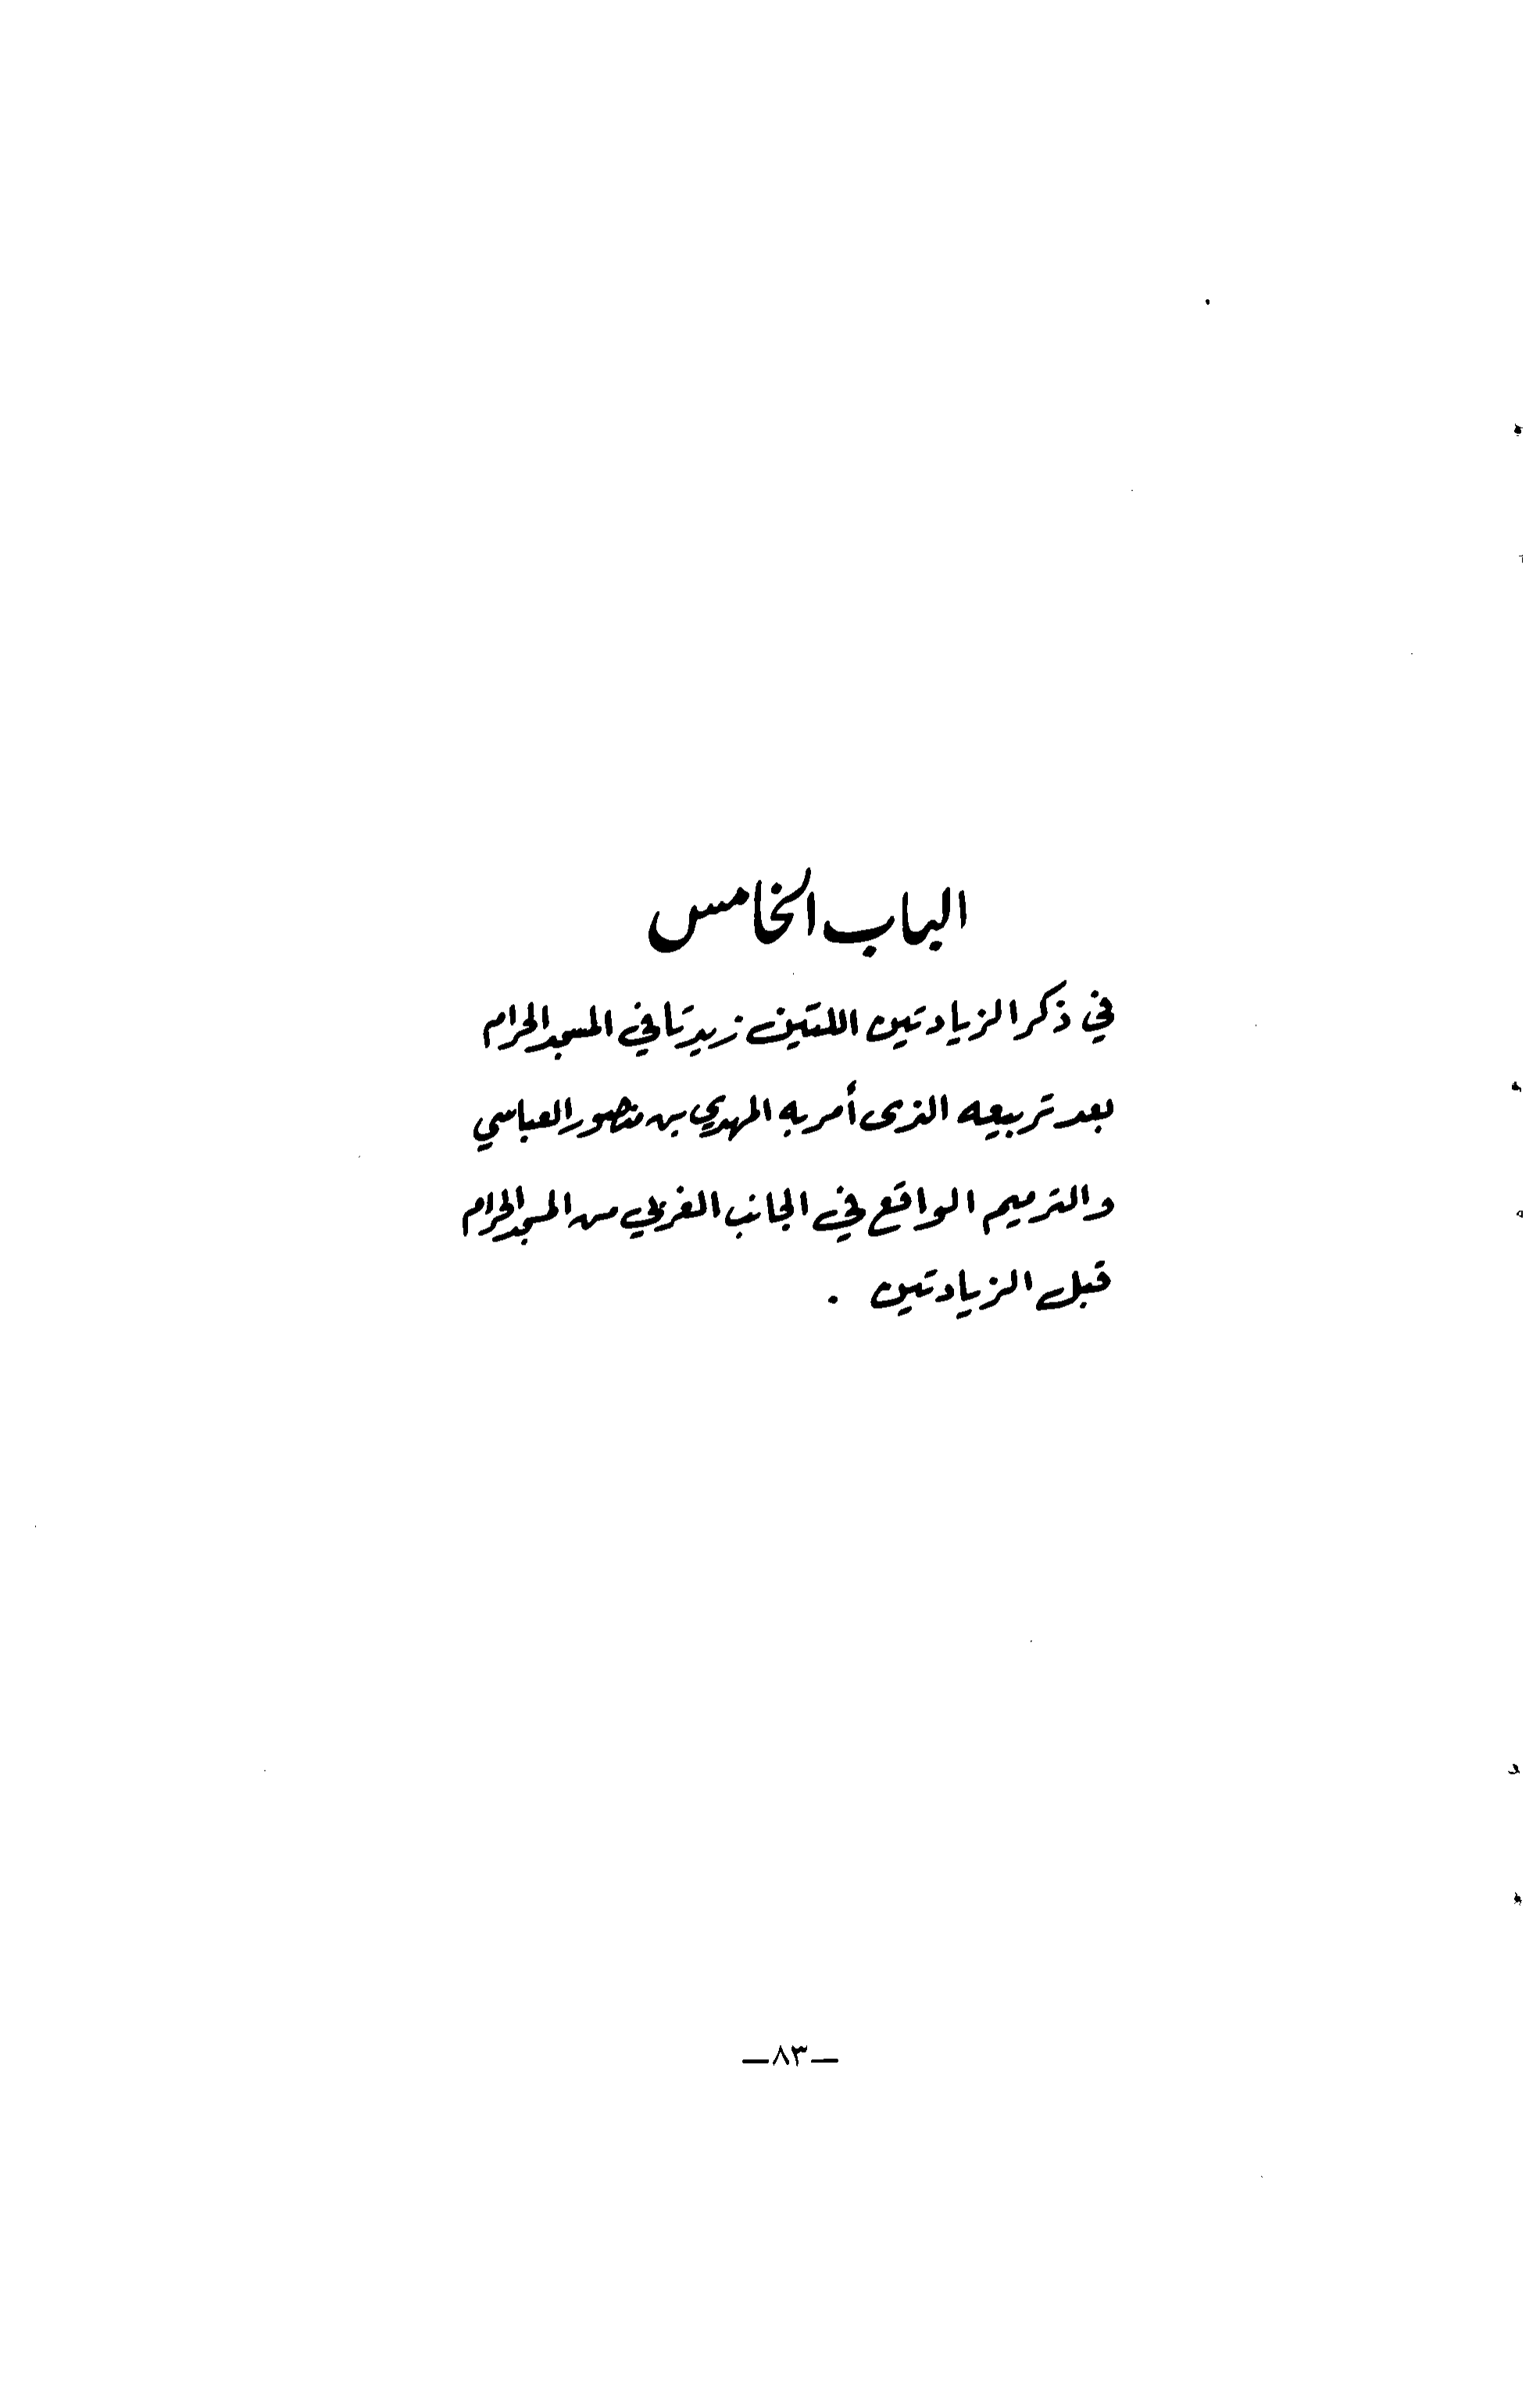 الباب الخامس
في ذكر الزيادتين اللتين زيدتا في المسجد الحرام
بعد تربيعه الذى أمر به المهدي بن منصور العباسي
والترميم الواقع في الجانب الغربي من المسجد الحرام
قبل الزيادتين .
—٨٣—